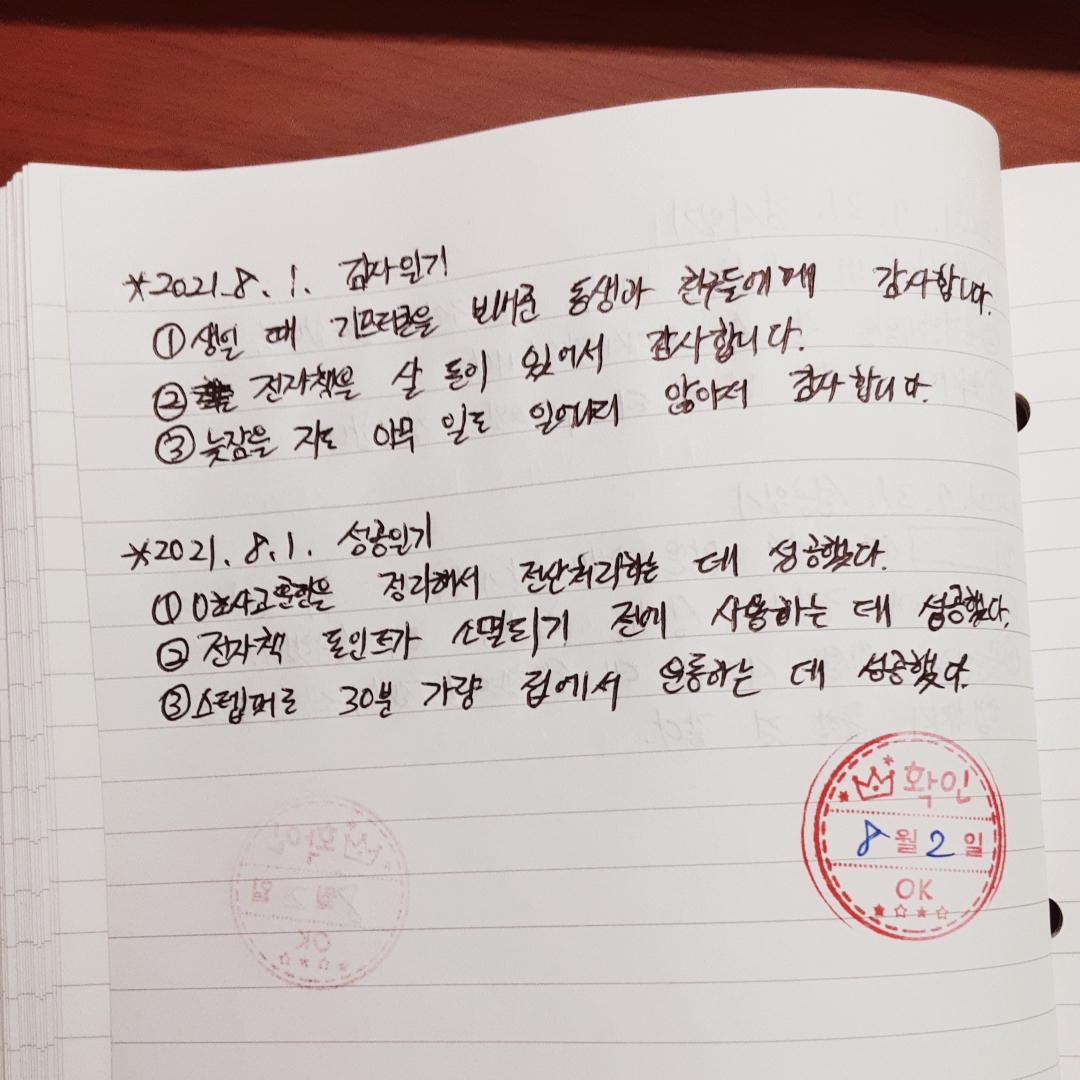 *2021. 8. 1. 감사일기
① 생일 때 기프티콘을 보내준 동생과 친구들에게 감사합니다.
② 전자책을 살 돈이 있어서 감사합니다.
③ 늦잠을 자도 아무 일도 일어나지 않아서 감사합니다.
*2021. 8. 1. 성공일기
① 정리해서 전산처리하는 데 성공했다.
② 전자책 포인트가 소멸되기 전에 사용하는 데 성공했다.
③ 스텝퍼로 30분 가량 집에서 운동하는 데 성공했다.
확인
8월 2일
OK